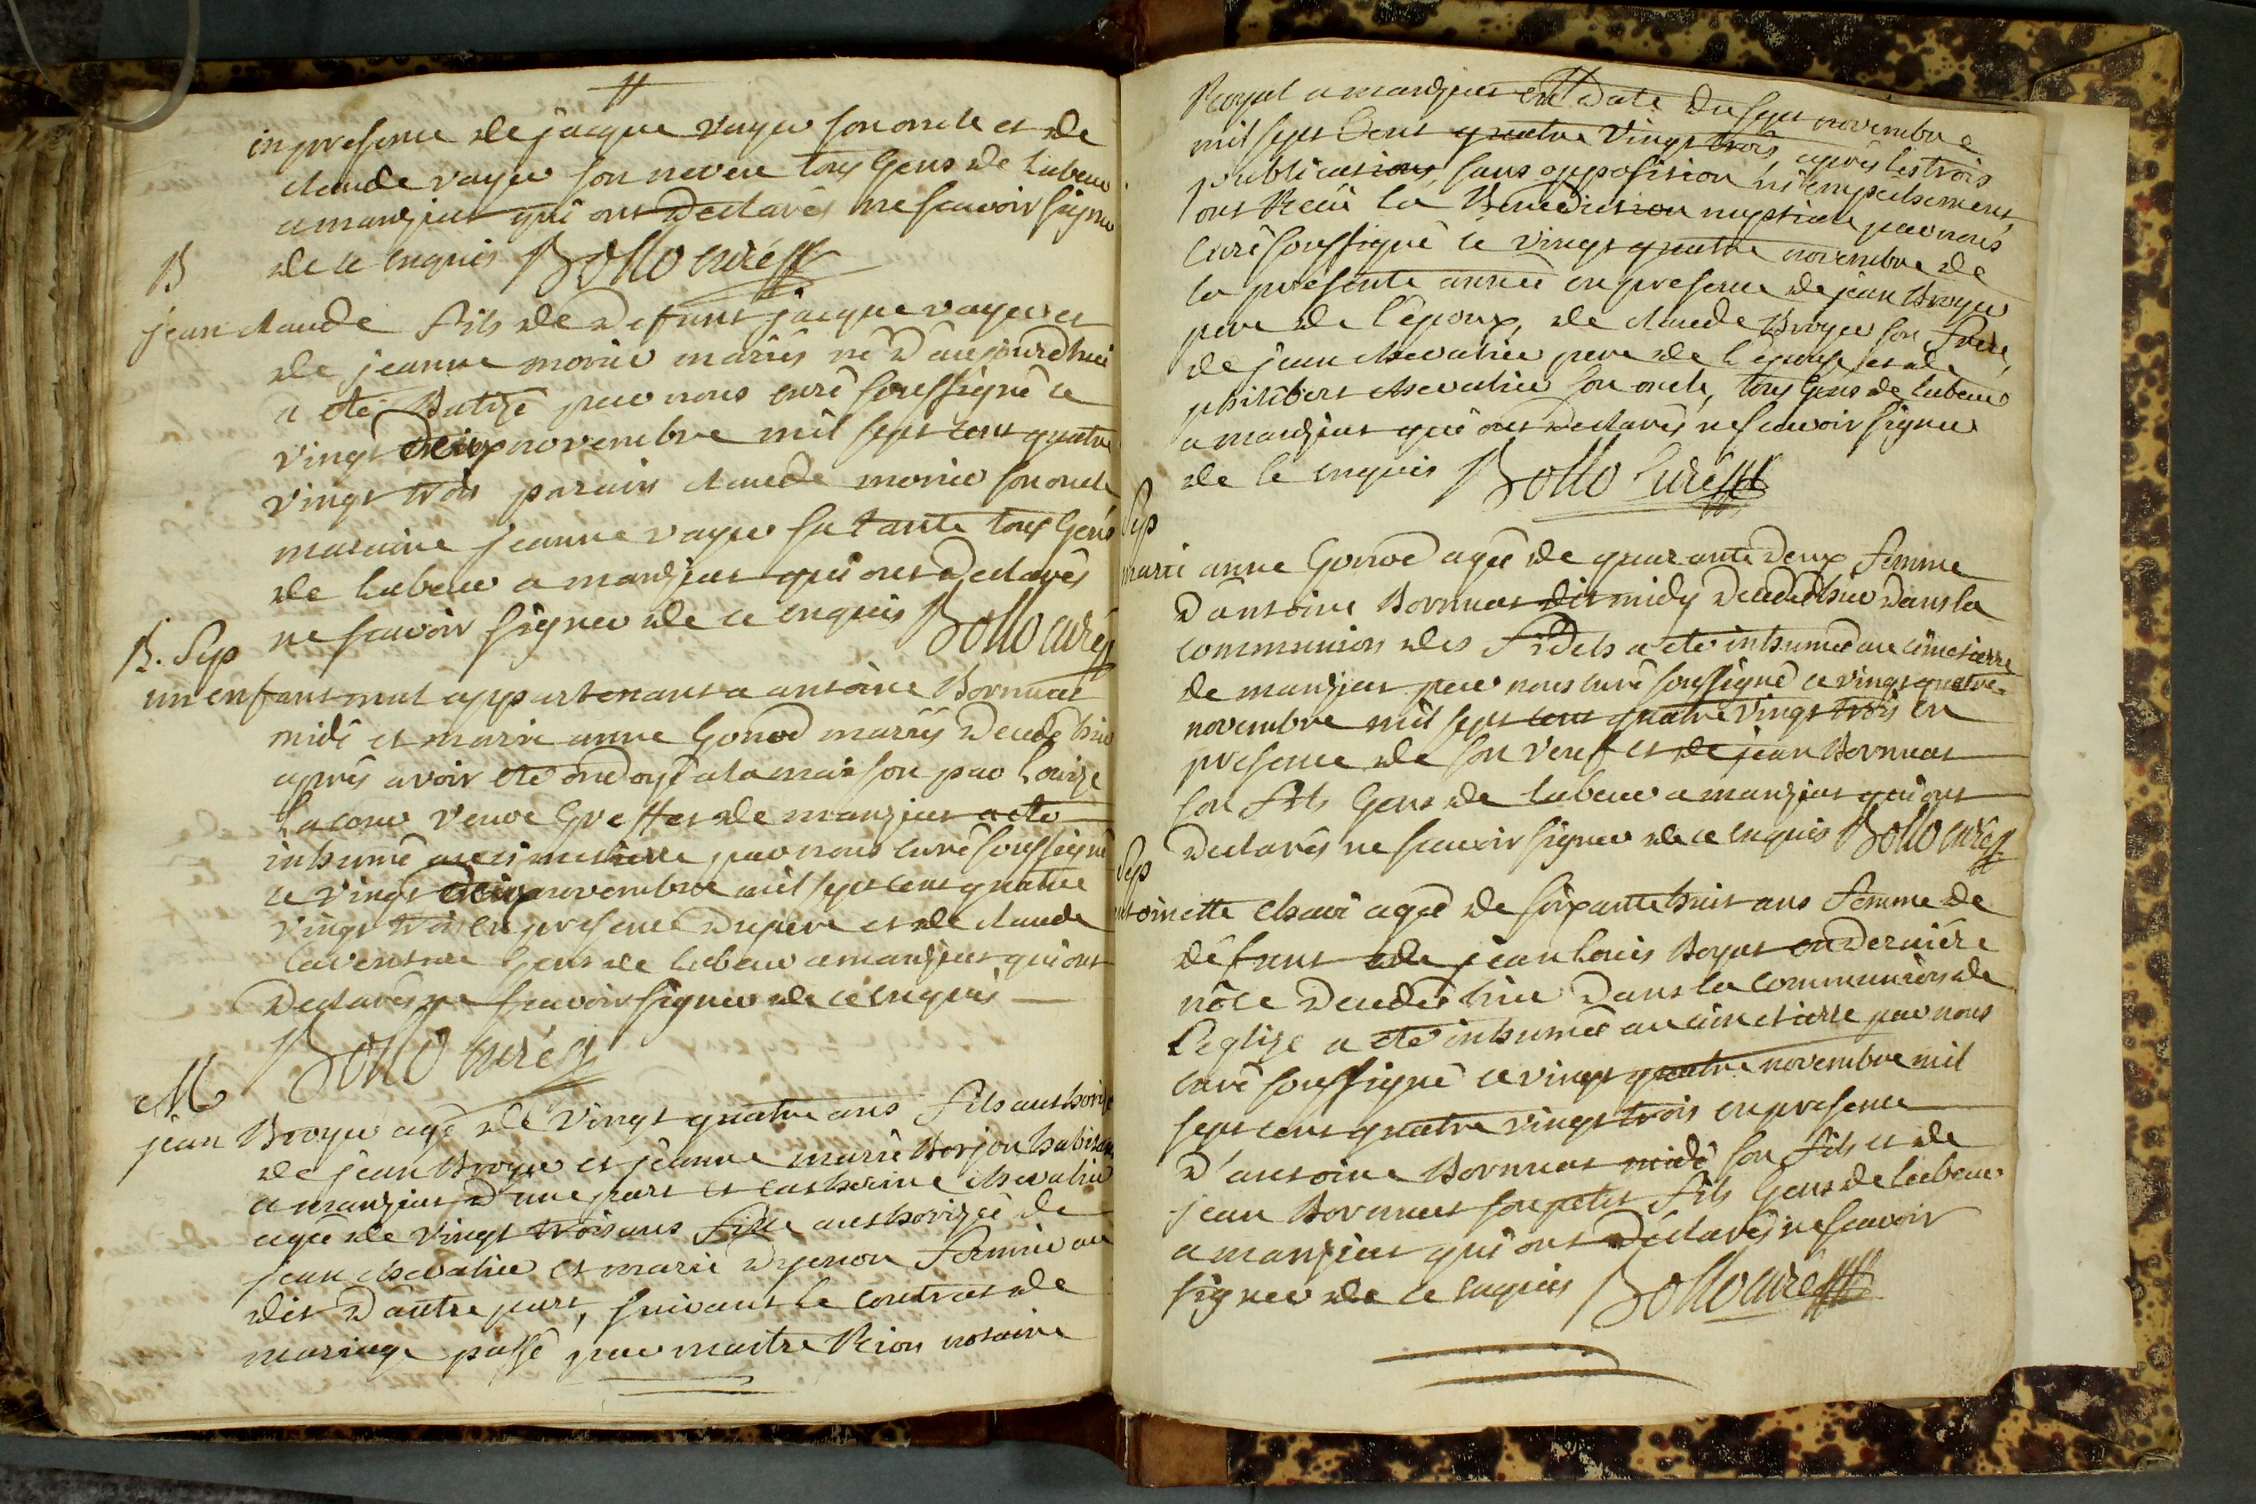 en presence de jacque vayer son oncle et de
claude vayer son neveu tous Gens de Labeur
a manziat qui ont Declarés ne scavoir signer
B
de ce enquis Bollo curé
jean claude fils de Defunt jacque vayer et
de jeanne monier mariés né D'aujourdhui
a eté Batizé par nous curé soussigné ce
vingt Deux novembre mil sept cent quatre
vingt trois parain claude monier son oncle
maraine jeanne vayer sa tante tous Gens
de Labeur a manziat qui ont Declarés
ne scavoir signer de ce enquis Bollo curé
B. Sep
un enfant mal appartenant a antoine Bornuat
midi et marie anne Gonod mariés Decedé hier
après avoir eté ondoyé a la maison par Louize
Lacour veuve Greffet de manziat a eté
inhumé au cimetierre par nous curé soussigné
ce vingt Deux novembre mil sept cent quatre
vingt trois en presence Du pere et de claude
Gens de Labeur a manziat qui ont
Declarés ne scavoir signer de ce enquis
Bollo curé
M
jean Broyer agé de vingt quatre ans fils authorizé
de jean Broyer et jeanne marie Borjon habitant
a manziat D'une part et catherine chevalier
agée de vingt trois ans fille authorizée de
jean chevalier et marie Dyenon fermier au
dit D'autre part, suivant le contrat de
mariage passé par maitre Rion notaire
Royal a manziat en Date Du sept novembre
mil sept Cent quatre vingt trois, après les trois
publications, sans opposition ni empechement,
ont Reçu la Benediction nuptiale par nous
Curé soussigné le vingt quatre novembre de
la presente année en presence de jean Broyer
pere de l'epoux, de claude Broyer son frere,
de jean chevalier pere de l'epouse et de
philibert chevalier son oncle, tous Gens de Labeur
a manziat qui ont Declarés ne scavoir signer
de ce enquis Bollo Curé
Sep
marie anne Gonod agée de quarante deux femme
D'antoine Bornuat dit midy Decedé hier Dans la
communion des Fidels a eté inhumée au cimetierre
de manziat par nous curé soussigné ce vingt quatre
novembre mil sept cent quatre vingt trois en
presence de son veuf et de jean Bornuat
son fils Gens de Labeur a manziat qui ont
Declarés ne scavoir signer de ce enquis Bollo curé
Sep
antoinette agée de soixante huit ans femme de
défunt de jean Louis Boyat en Derniére
nôce Decedée hier Dans la communion de
L'eglize a eté inhumée au cimetierre par nous
curé soussigné ce vingt quatre novembre mil
sept cent quatre vingt trois en presence
D'antoine Bornuat midi son fils et de
jean Bornuat son petit fils Gens de Labeur
a manziat qui ont Declarés ne scavoir
signer de ce enquis Bollo curé